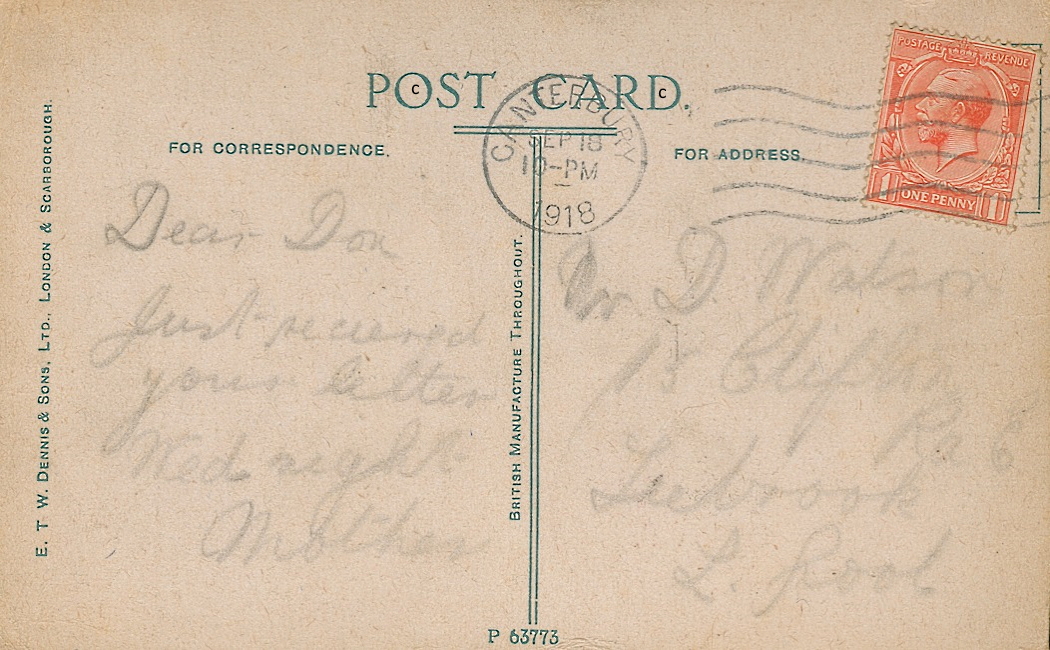 POST CARD.
c
c
FOR CORRESPONDENCE.
FOR ADDRESS.
CANTERBURY
SEP 18
10-PM
1918
POSTAGE REVENUE
1 ONE PENNY 1
Dear Don
Just recieved
your letter
Wed night
Mother
Mr D. Watson
15
Rd 6
Seebrook
L. Pool
E. T. W. DENNIS & SONS, LTD., LONDON & SCARBOROUGH.
BRITISH MANUFACTURE THROUGHOUT.
P 63773